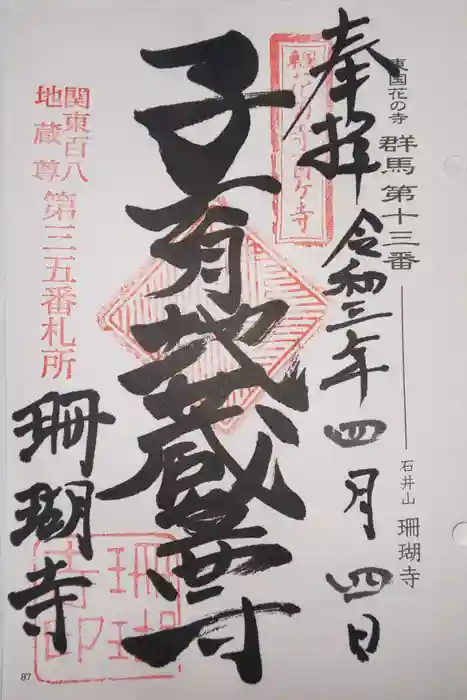 東国花の寺 群馬 第十三番 石井山 珊瑚寺
奉拝 令和三年四月四日
東国花の寺百ケ寺
子育地蔵尊
関東百八
地蔵尊 第三五番札所
珊瑚寺
珊瑚
寺印
87